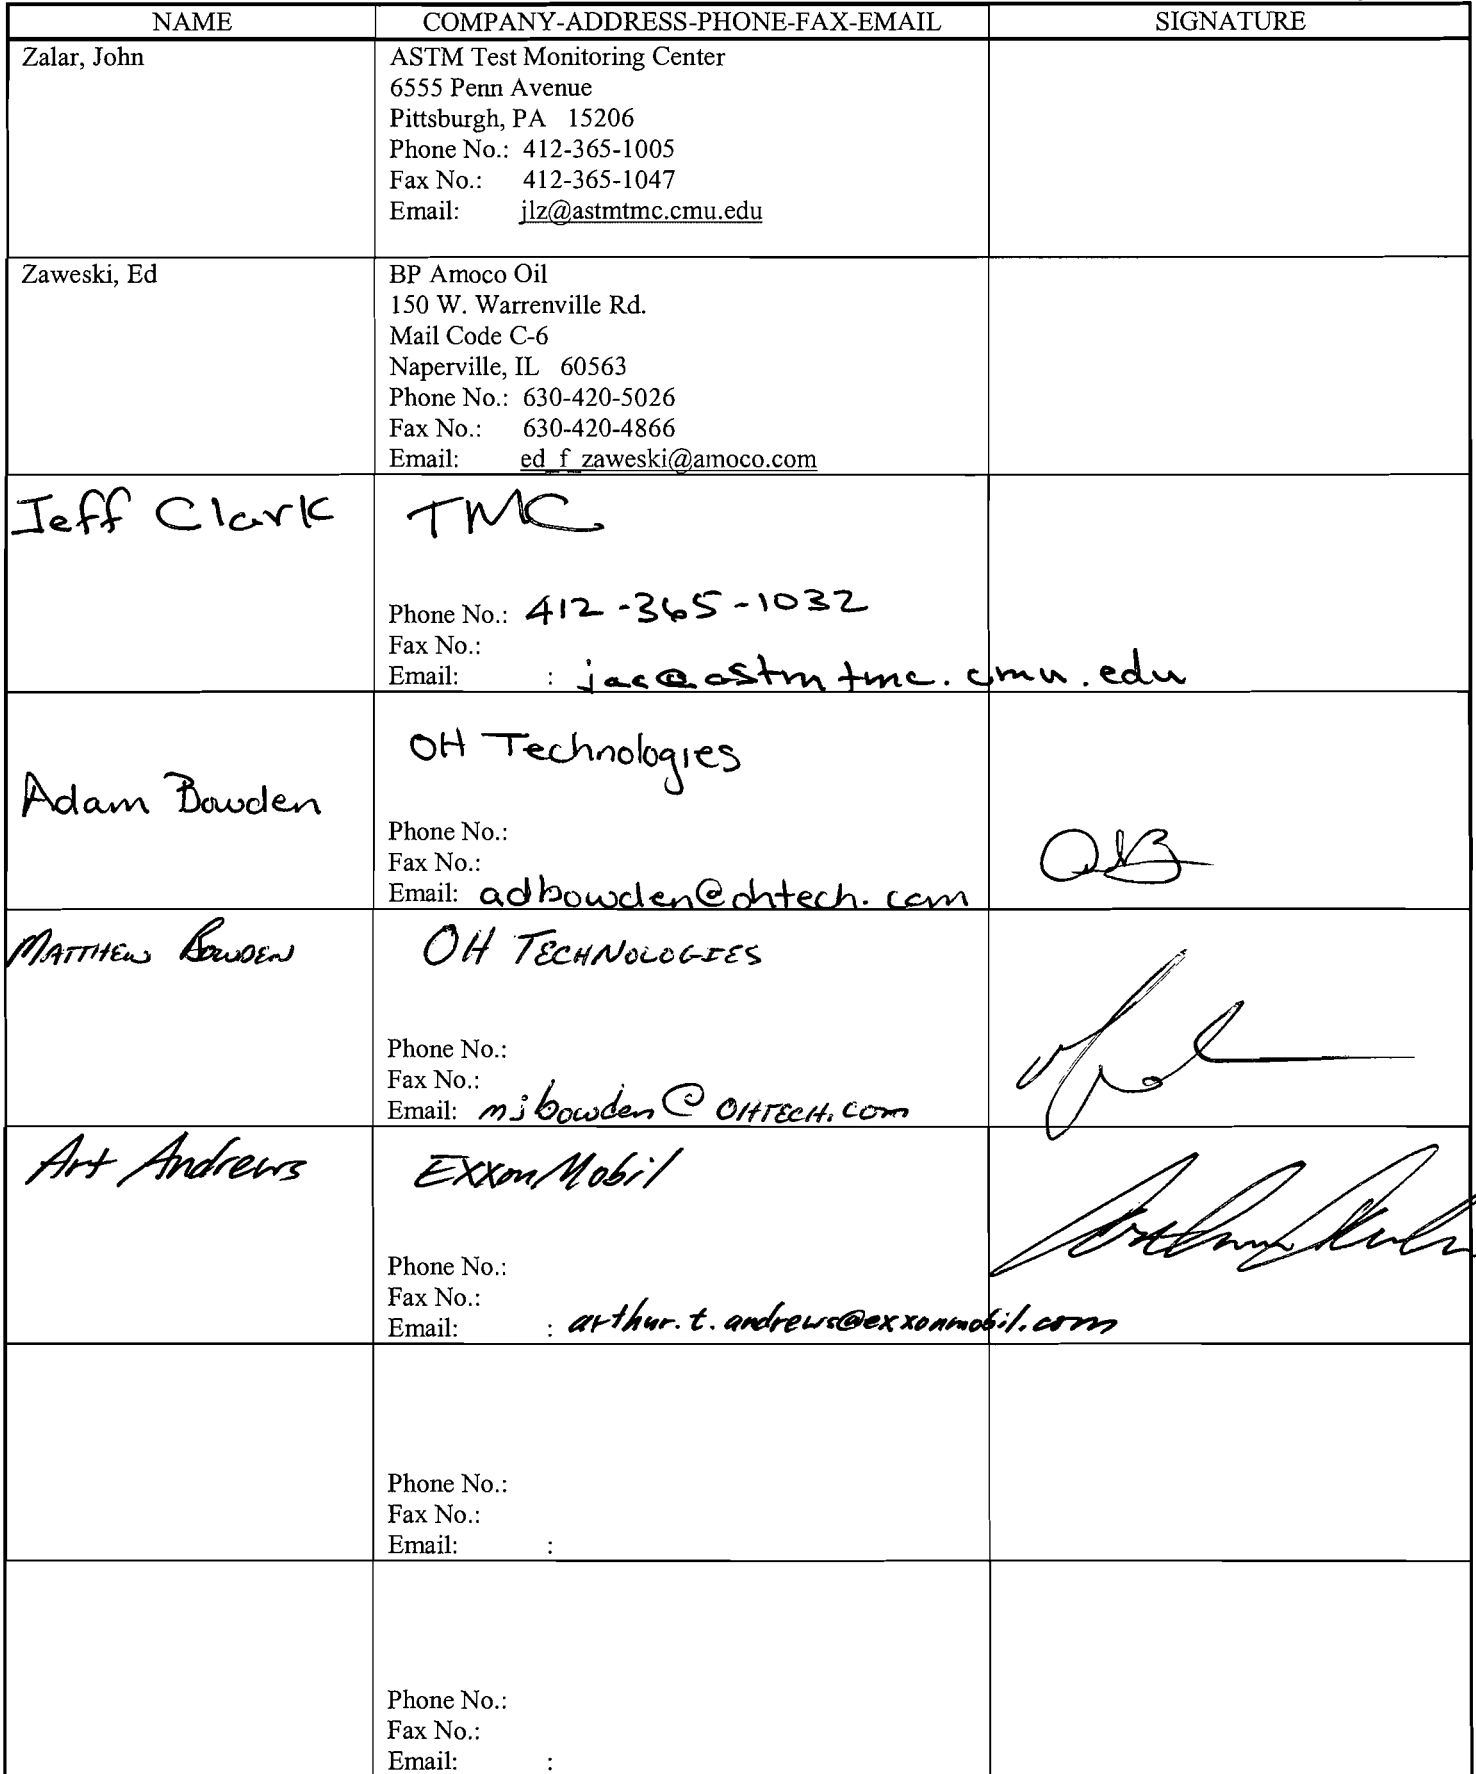 NAME COMPANY-ADDRESS-PHONE-FAX-EMAIL SIGNATURE
Zalar, John
ASTM Test Monitoring Center
6555 Penn Avenue
Pittsburgh, PA 15206
Phone No.: 412-365-1005
Fax No.: 412-365-1047
Email: jlz@astmtmc.cmu.edu
Zaweski, Ed
BP Amoco Oil
150 W. Warrenville Rd.
Mail Code C-6
Naperville, IL 60563
Phone No.: 630-420-5026
Fax No.: 630-420-4866
Email: ed_f_zaweski@amoco.com
Jeff Clark
TMC
Phone No.: 412-365-1032
Fax No.:
Email: : jac@astmtmc.cmu.edu
Adam Bowden
OH Technologies
Phone No.:
Fax No.:
Email: adbowden@ohtech.com
MATTHEW BOWDEN
OH TECHNOLOGIES
Phone No.:
Fax No.:
Email: mjbowden@OHTECH.com
Art Andrews
ExxonMobil
Phone No.:
Fax No.:
Email: : arthur.t.andrews@exxonmobil.com
Phone No.:
Fax No.:
Email: :
Phone No.:
Fax No.:
Email: :